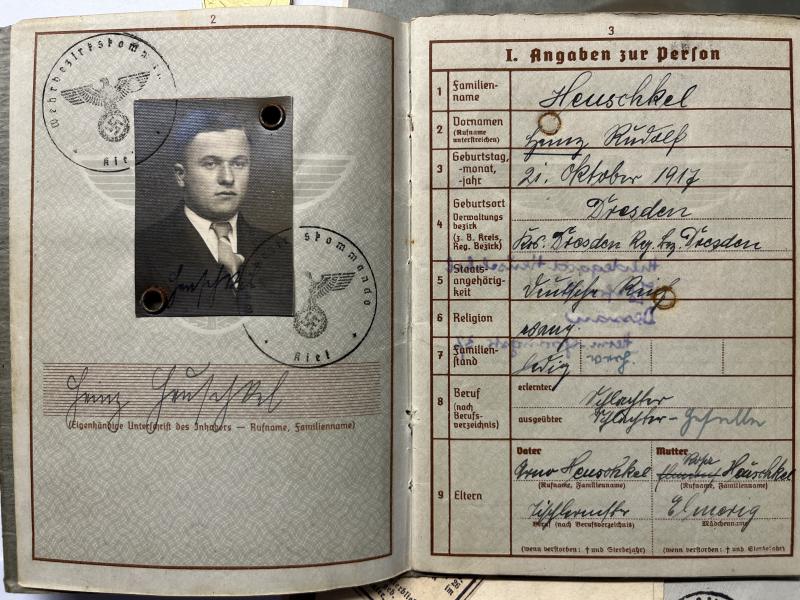 2
Wehrbezirkskommando
Kiel
Wehrbezirkskommando
Kiel
Heuschkel
Heinz Heuschkel
(Eigenhändige Unterschrift des Inhabers — Rufname, Familienname)
3
I. Angaben zur Person
1 Familien-
name
Heuschkel
2 Vornamen
(Rufname
unterstreichen)
Heinz Rudolf
3 Geburtstag,
-monat,
-jahr
21. Oktober 1917
4 Geburtsort
Verwaltungs-
bezirk
(z. B. Kreis,
Reg. Bezirk)
Dresden
Krs. Dresden Rg. bz. Dresden
5 Staats-
angehörig-
keit
Deutsches Reich
6 Religion
evang.
7 Familien-
stand
ledig
8 Beruf
(nach
Berufs-
verzeichnis)
erlernter
Schlachter
ausgeübter
Schlachter-Geselle
9 Eltern
Vater
Arno Heuschkel
(Rufname, Familienname)
Tischlermstr
Beruf (nach Berufsverzeichnis)
(wenn verstorben: † und Sterbejahr)
Mutter
Heuschkel
(Rufname, Familienname)
Mädchenname
(wenn verstorben: † und Sterbejahr)